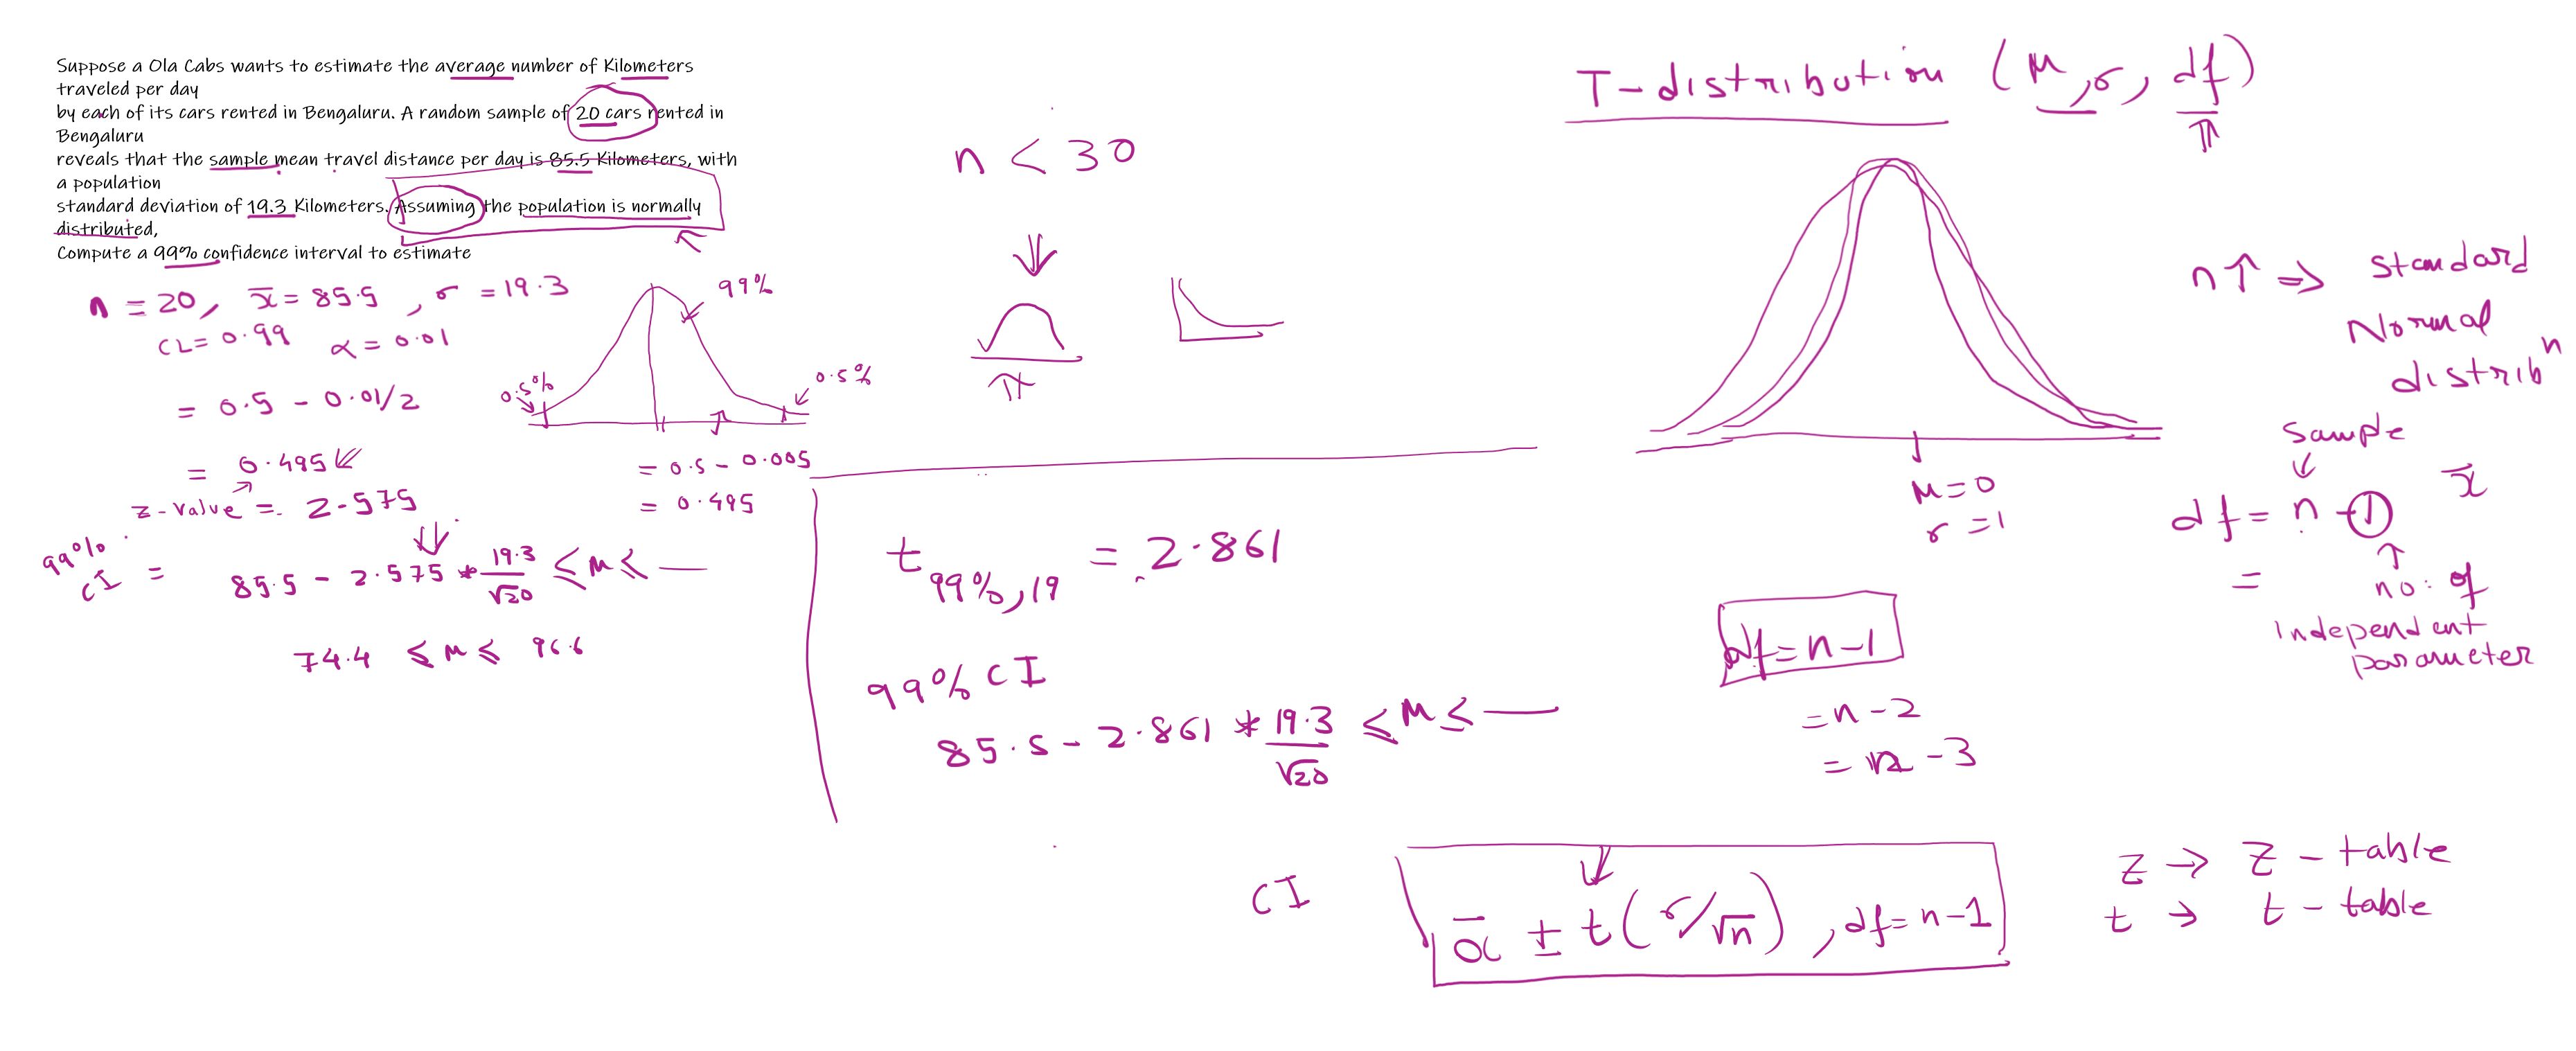 Suppose a Ola Cabs wants to estimate the average number of Kilometers
traveled per day
by each of its cars rented in Bengaluru. A random sample of 20 cars rented in
Bengaluru
reveals that the sample mean travel distance per day is 85.5 Kilometers, with
a population
standard deviation of 19.3 Kilometers. Assuming the population is normally
distributed,
Compute a 99% confidence interval to estimate
n = 20, x̄ = 85.5, σ = 19.3
CL = 0.99 α = 0.01
= 0.5 - 0.01/2
= 0.495
z-value = 2.575
99% CI = 85.5 - 2.575 * 19.3/√20 ≤ μ ≤ —
74.4 ≤ μ ≤ 96.6
99%
0.5%
0.5%
= 0.5 - 0.005
= 0.495
n < 30
t 99%, 19 = 2.861
99% CI
85.5 - 2.861 * 19.3/√20 ≤ μ ≤ —
T-distribution (μ, σ, df)
μ = 0
σ = 1
n↑ ⇒ Standard
Normal
distribⁿ
Sample
df = n - 1 x̄
=
no. of
Independent
parameter
df = n-1
= n-2
= n-3
CI x̄ ± t(σ/√n), df = n-1
z → z-table
t → t-table